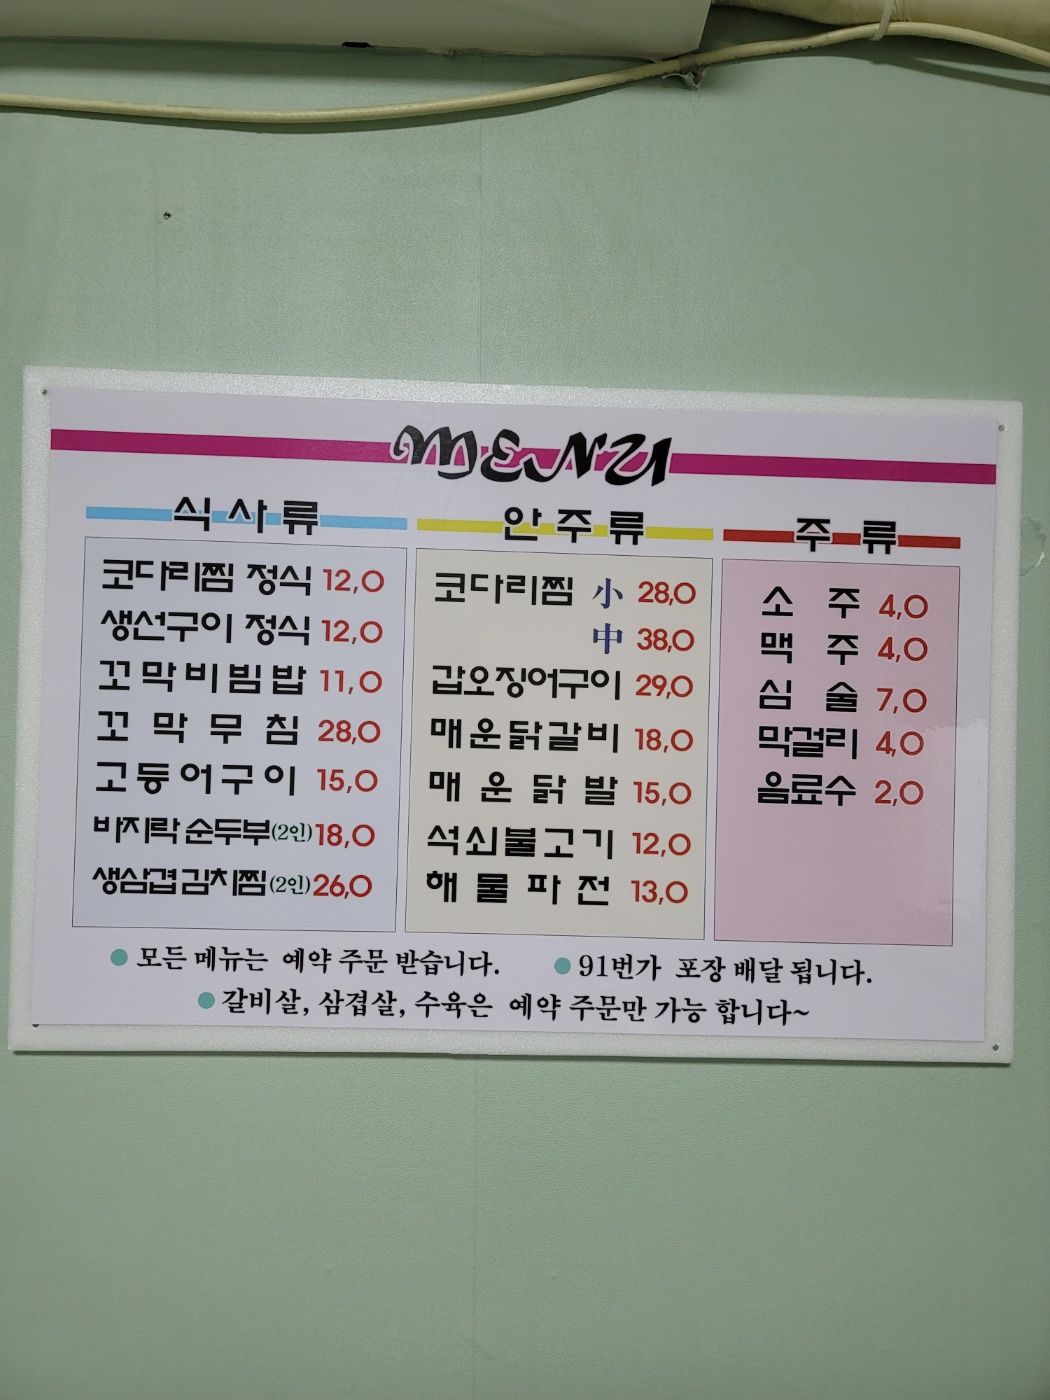 MENU
식사류
코다리찜 정식 12,0
생선구이 정식 12,0
꼬막비빔밥 11,0
꼬막무침 28,0
고등어구이 15,0
바지락 순두부(2인) 18,0
생삼겹김치찜(2인) 26,0
안주류
코다리찜 小 28,0
中 38,0
갑오징어구이 29,0
매운닭갈비 18,0
매운닭발 15,0
석쇠불고기 12,0
해물파전 13,0
주류
소주 4,0
맥주 4,0
심술 7,0
막걸리 4,0
음료수 2,0
● 모든 메뉴는 예약 주문 받습니다.
● 91번가 포장 배달 됩니다.
● 갈비살, 삼겹살, 수육은 예약 주문만 가능 합니다~